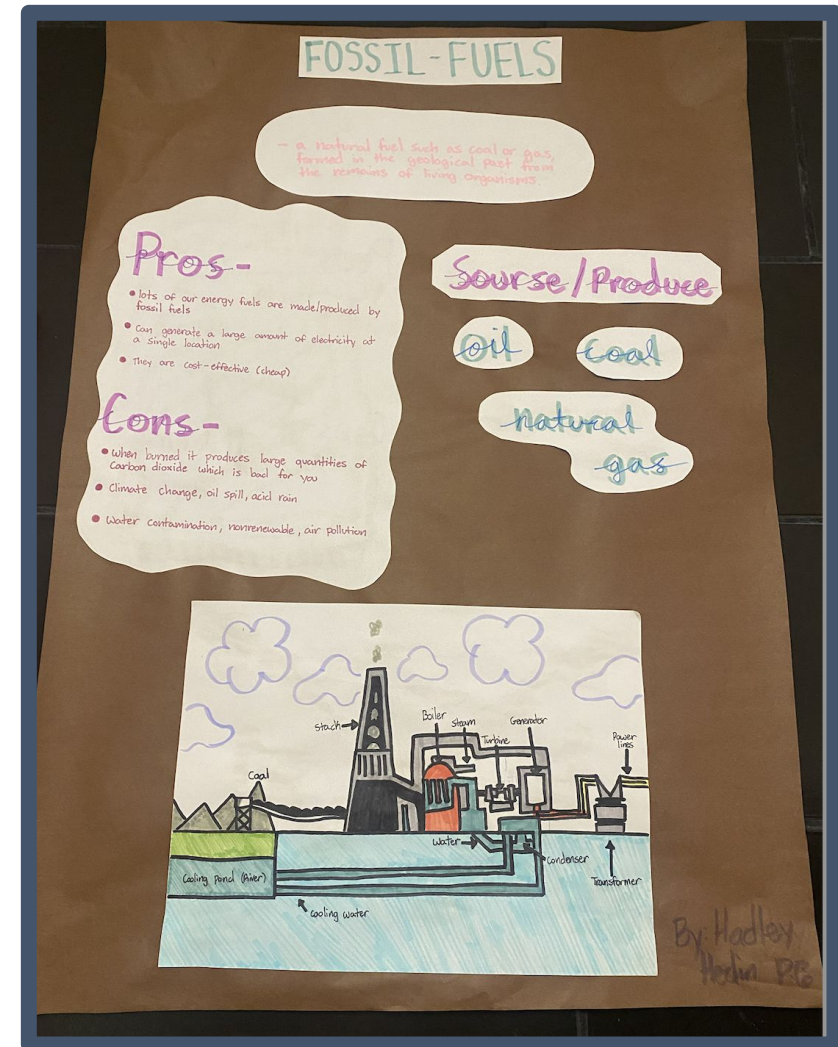 FOSSIL-FUELS
- a natural fuel such as coal or gas,
formed in the geological past from
the remains of living organisms.
Pros-
• lots of our energy fuels are made/produced by
fossil fuels
• Can generate a large amount of electricity at
a single location
• They are cost-effective (cheap)
Cons-
• When burned it produces large quantities of
Carbon dioxide which is bad for you
• Climate change, oil spill, acid rain
• Water contamination, nonrenewable, air pollution
Sourse/Produce
oil
coal
natural
gas
Stack
Boiler
Steam
Turbine
Generator
Power
lines
Coal
Water
Condenser
Transformer
Cooling pond (River)
Cooling water
By: Hadley
Hedin